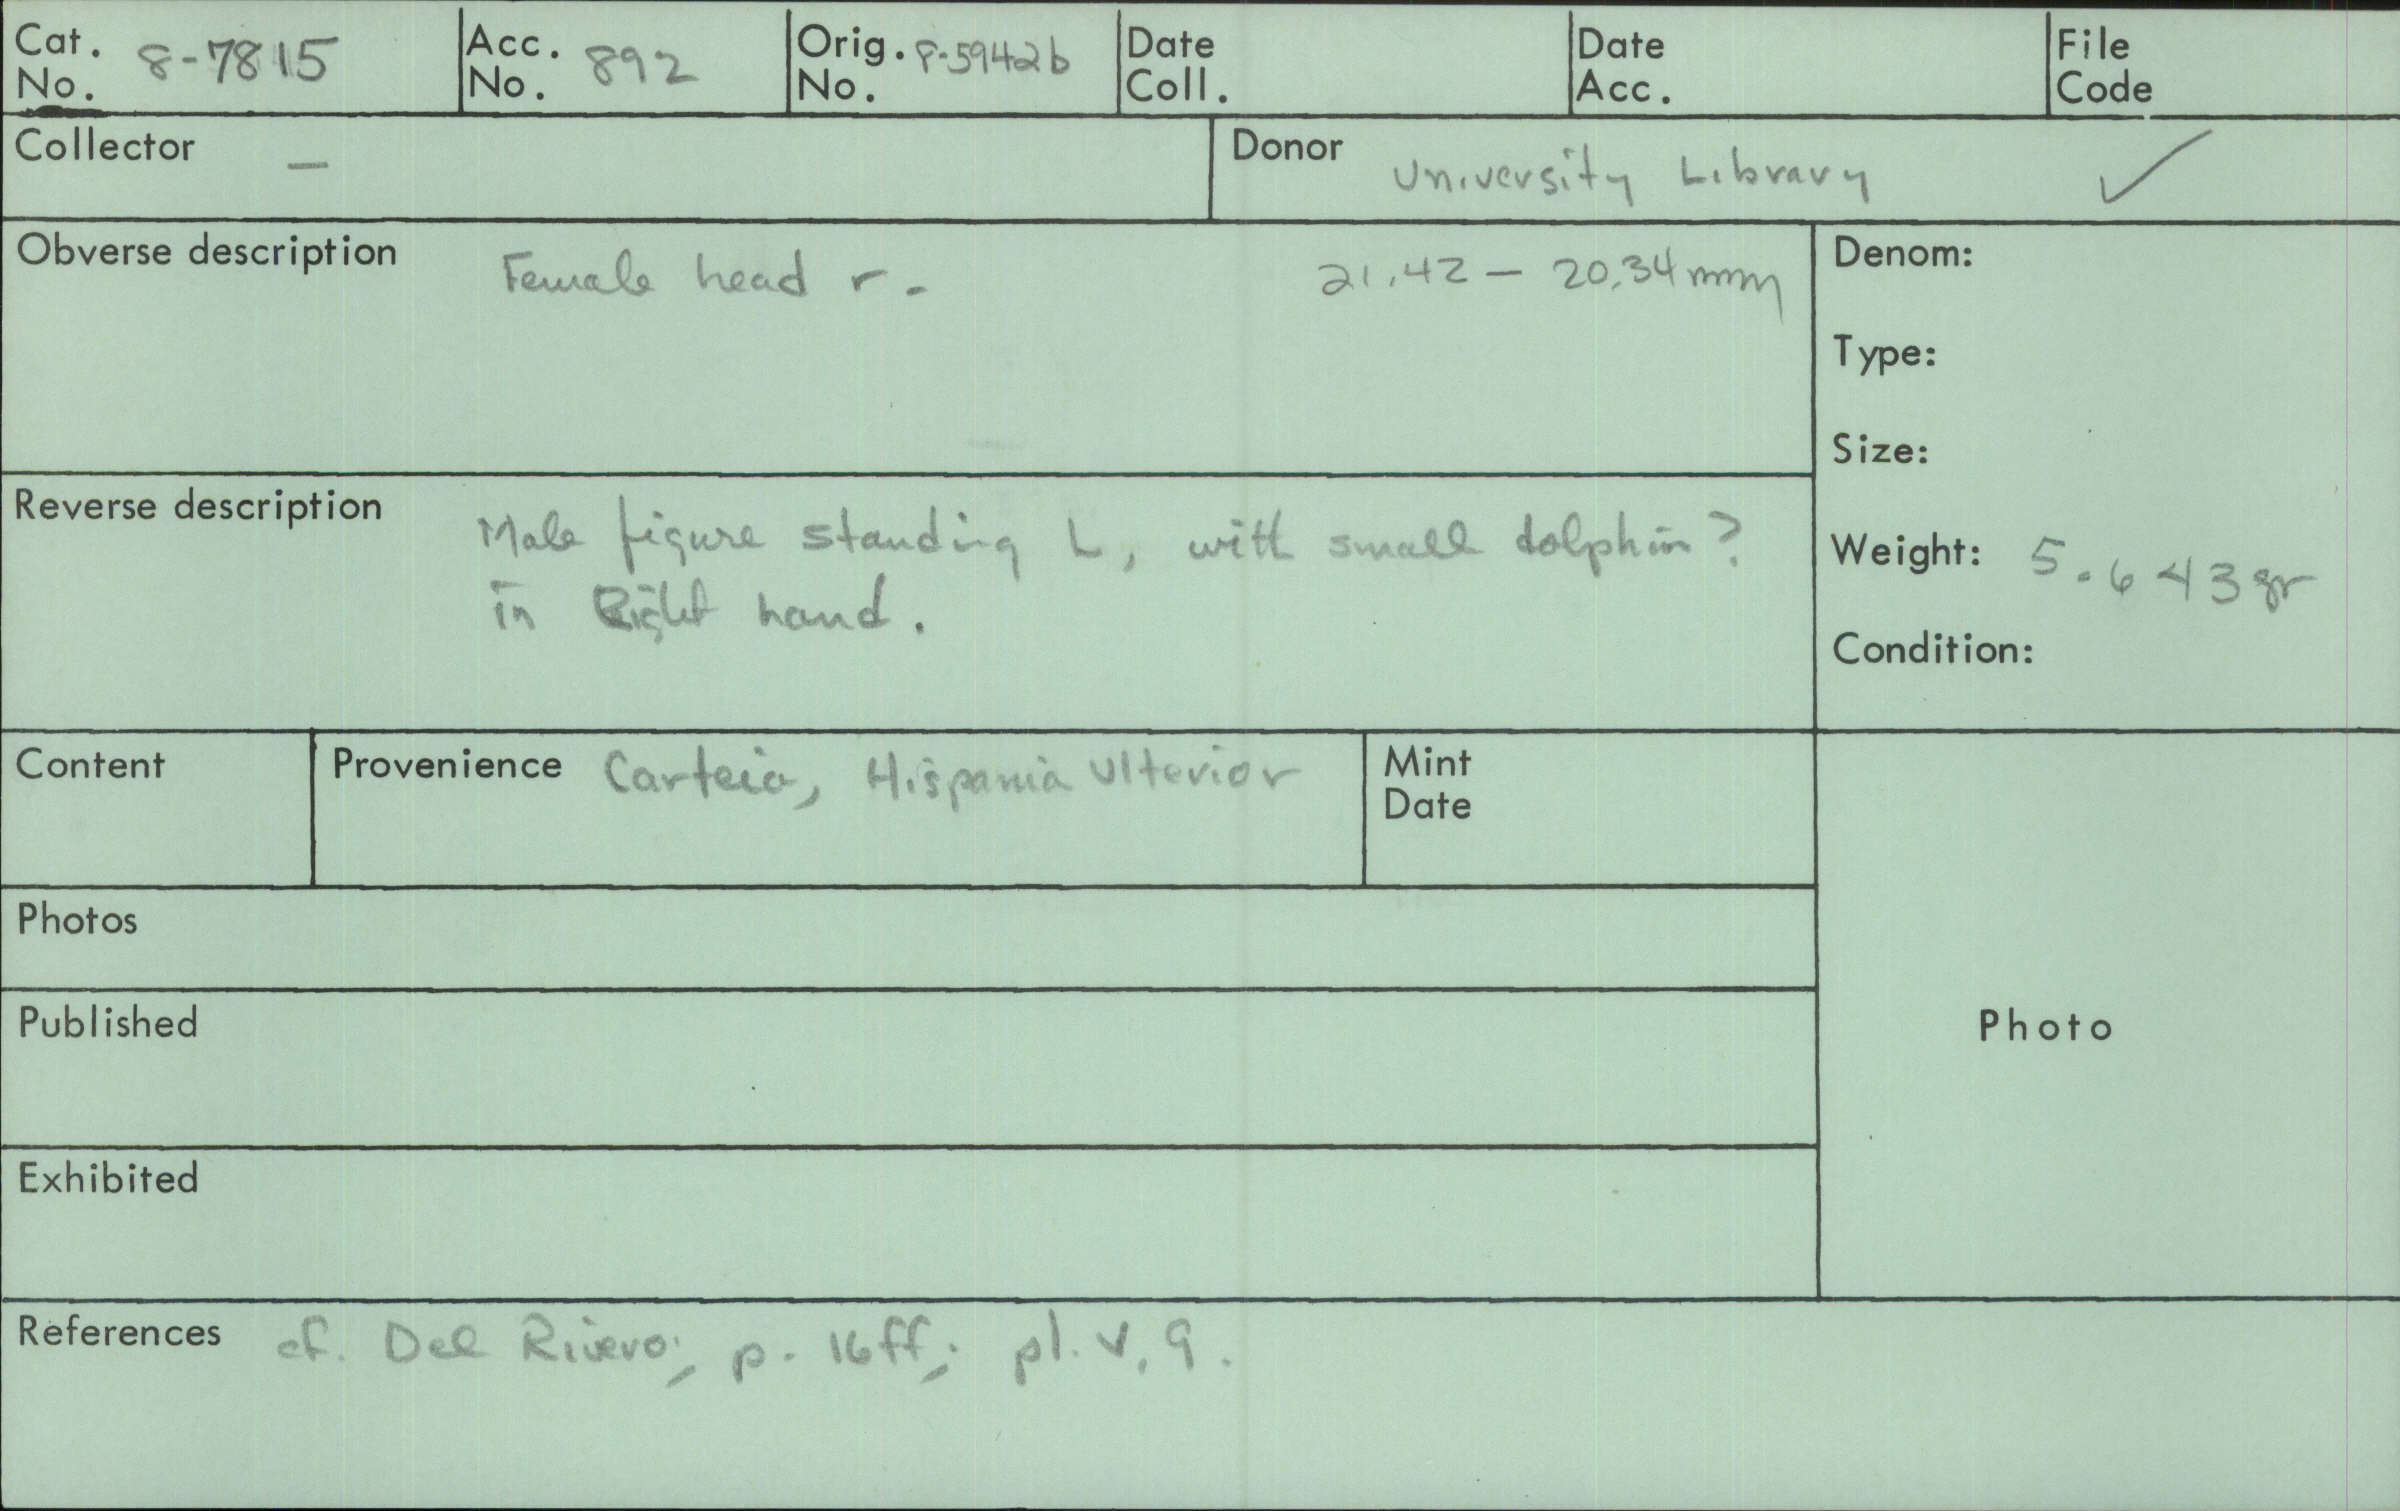 Cat. No. 8-7815
Acc. No. 892
Orig. No. 8-5942b
Date Coll.
Date Acc.
File Code
Collector —
Donor University Library ✓
Obverse description Female head r. 21.42 — 20.34 mm
Denom:
Type:
Size:
Weight: 5.643 gr
Condition:
Reverse description Male figure standing L, with small dolphin?
in Right hand.
Content
Provenience Carteia, Hispania Ulterior
Mint Date
Photos
Published
Photo
Exhibited
References cf. Del Rivero; p. 16ff; pl. V, 9.